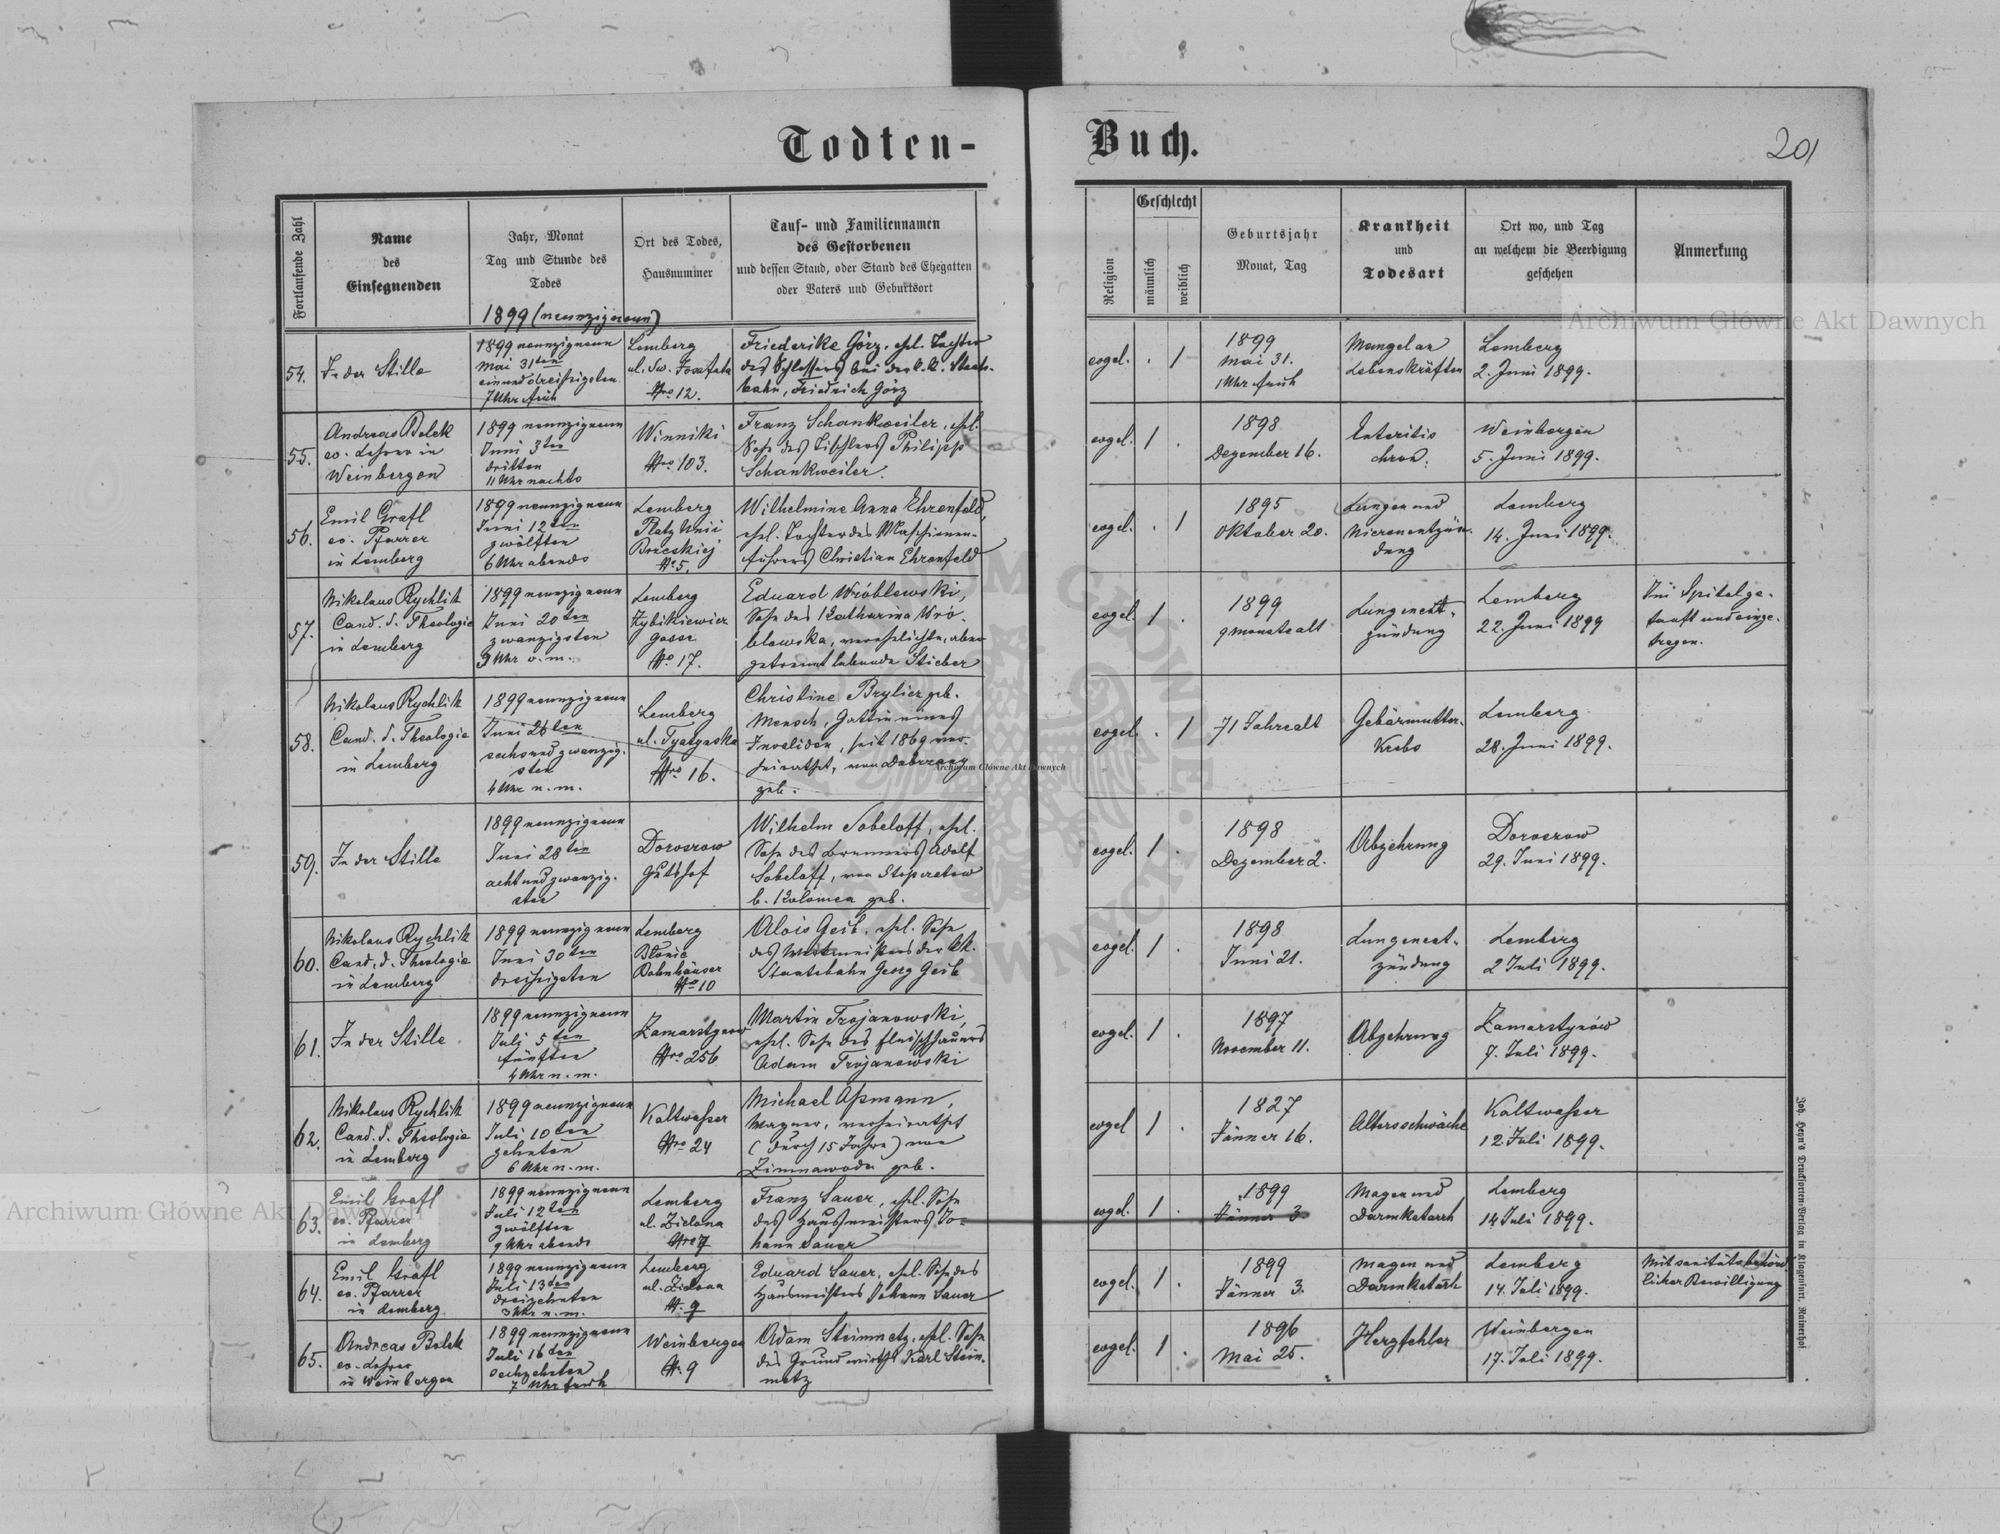 Todten-Buch.
201
Fortlaufende Zahl
Name
des
Einsegnenden
Jahr, Monat
Tag und Stunde des
Todes
1899 (neunzignenn)
Ort des Todes,
Hausnummer
Tauf- und Familiennamen
des Gestorbenen
und dessen Stand, oder Stand des Ehegatten
oder Vaters und Geburtsort
Religion
Geschlecht
männlich
weiblich
Geburtsjahr
Monat, Tag
Krankheit
und
Todesart
Ort wo, und Tag
an welchem die Beerdigung
geschehen
Anmerkung
54.
In der Stille
1899 neunzigneun
Mai 31ten
einunddreißigsten
7 Uhr früh
Lemberg
ul. Sw. Jozefata
Nro 12.
Friederike Görz, ehel. Tochter
des Schlossers bei der k. k. Staats-
bahn, Friedrich Görz
evgel. . 1
1899
Mai 31.
1 Uhr früh
Mangel an
Lebenskräften
Lemberg
2. Juni 1899.
55.
Andreas Bolek
ev. Lehrer in
Weinbergen
1899 neunzigneun
Juni 3ten
dritten
11 Uhr nachts
Winniki
Nro 103.
Franz Schankweiler, ehel.
Sohn des Tischlers Philipp
Schankweiler.
evgel. 1 .
1898
Dezember 16.
Enteritis
chron.
Weinbergen
5. Juni 1899.
56.
Emil Grafl
ev. Pfarrer
in Lemberg
1899 neunzigneun
Juni 12ten
zwölften
6 Uhr abends
Lemberg
Platz Unii
Brzeskiej
No 5.
Wilhelmine Anna Ehrenfeld,
ehel. Tochter des Maschinen-
führers Christian Ehrenfeld
evgel. . 1
1895
Oktober 20.
Lungen und
Nierenentzün-
dung
Lemberg
14. Juni 1899.
57.
Nikolaus Rychlik
Cand. d. Theologie
in Lemberg
1899 neunzigneun
Juni 20ten
zwanzigsten
9 Uhr v. m.
Lemberg
Zybikiewicz
gasse
No 17.
Eduard Wróblewski,
Sohn der Katharina Wró-
blewska, verehelichte, aber
getrennt lebende Stieber
evgel. 1 .
1899
9 monate alt
Lungenent-
zündung
Lemberg
22. Juni 1899
Im Spital ge-
tauft und einge-
tragen.
58.
Nikolaus Rychlik
Cand. d. Theologie
in Lemberg
1899 neunzigneun
Juni 26ten
sechsundzwanzig-
sten
4 Uhr n. m.
Lemberg
Nro 16.
Christine Brylicz geb.
Mensch, Gattin eines
Invaliden, seit 1869 ver-
heirathet, von
geb.
evgel. . 1
71 Jahre alt
Gebärmutter-
Krebs
Lemberg
28. Juni 1899.
59.
In der Stille
1899 neunzigneun
Juni 28ten
achtundzwanzig-
sten
Gutshof
Wilhelm Sobeloff, ehel.
Sohn des Brenners Adolf
Sobeloff, von
b. Kolomea geb.
evgel. 1 .
1898
Dezember 2.
Abzehrung
29. Juni 1899.
60.
Nikolaus Rychlik
Cand. d. Theologie
in Lemberg
1899 neunzigneun
Juni 30ten
dreißigsten
Lemberg
Błonie
Bahnhäuser
No 10
Alois Geib, ehel. Sohn
des Werkmeisters der kk.
Staatsbahn Georg Geib
evgel. 1 .
1898
Juni 21.
Lungenent-
zündung
Lemberg
2 Juli 1899.
61.
In der Stille
1899 neunzigneun
Juli 5ten
fünften
4 Uhr n. m.
Zamarstynow
Nro 256
Martin Trojanowski,
ehel. Sohn des Fleischhauers
Adam Trojanowski
evgel. 1 .
1897
November 11.
Abzehrung
Zamarstynów
7. Juli 1899.
62.
Nikolaus Rychlik
Cand. d. Theologie
in Lemberg
1899 neunzigneun
Juli 10ten
zehnten
6 Uhr n. m.
Kaltwasser
Nro 24
Michael Assmann,
Wagner, verheirathet
(durch 15 Jahre) von
Zimnawoda geb.
evgel 1 .
1827
Jänner 16.
Altersschwäche
Kaltwasser
12. Juli 1899.
63.
Emil Grafl
ev. Pfarrer
in Lemberg
1899 neunzigneun
Juli 12ten
zwölften
9 Uhr abends
Lemberg
ul. Zielona
Nro 9
Franz Sauer, ehel. Sohn
des Hausmeisters Jo-
hann Sauer
evgel. 1 .
1899
Jänner 3.
Magen und
Darmkatarrh
Lemberg
14 Juli 1899.
64.
Emil Grafl
ev. Pfarrer
in Lemberg
1899 neunzigneun
Juli 13ten
dreizehnten
3 Uhr n. m.
Lemberg
ul. Zielona
No 9
Eduard Sauer, ehel. Sohn des
Hausmeisters Johann Sauer
evgel. 1 .
1899
Jänner 3.
Magen und
Darmkatarrh
Lemberg
14. Juli 1899.
Mit sanitätsbehörd-
licher Bewilligung
65.
Andreas Bolek
ev. Lehrer
in Weinbergen
1899 neunzigneun
Juli 16ten
sechzehnten
7 Uhr früh
Weinbergen
No 9
Adam Steinmetz, ehel. Sohn
des Grundwirths Karl Stein-
metz
evgel. 1 .
1896
Mai 25.
Herzfehler
Weinbergen
17. Juli 1899.
Joh. Heyn's Drucksorten-Verlag in Klagenfurt, Rainerhof.
Archiwum Główne Akt Dawnych
Archiwum Główne Akt Dawnych
Archiwum Główne Akt Dawnych